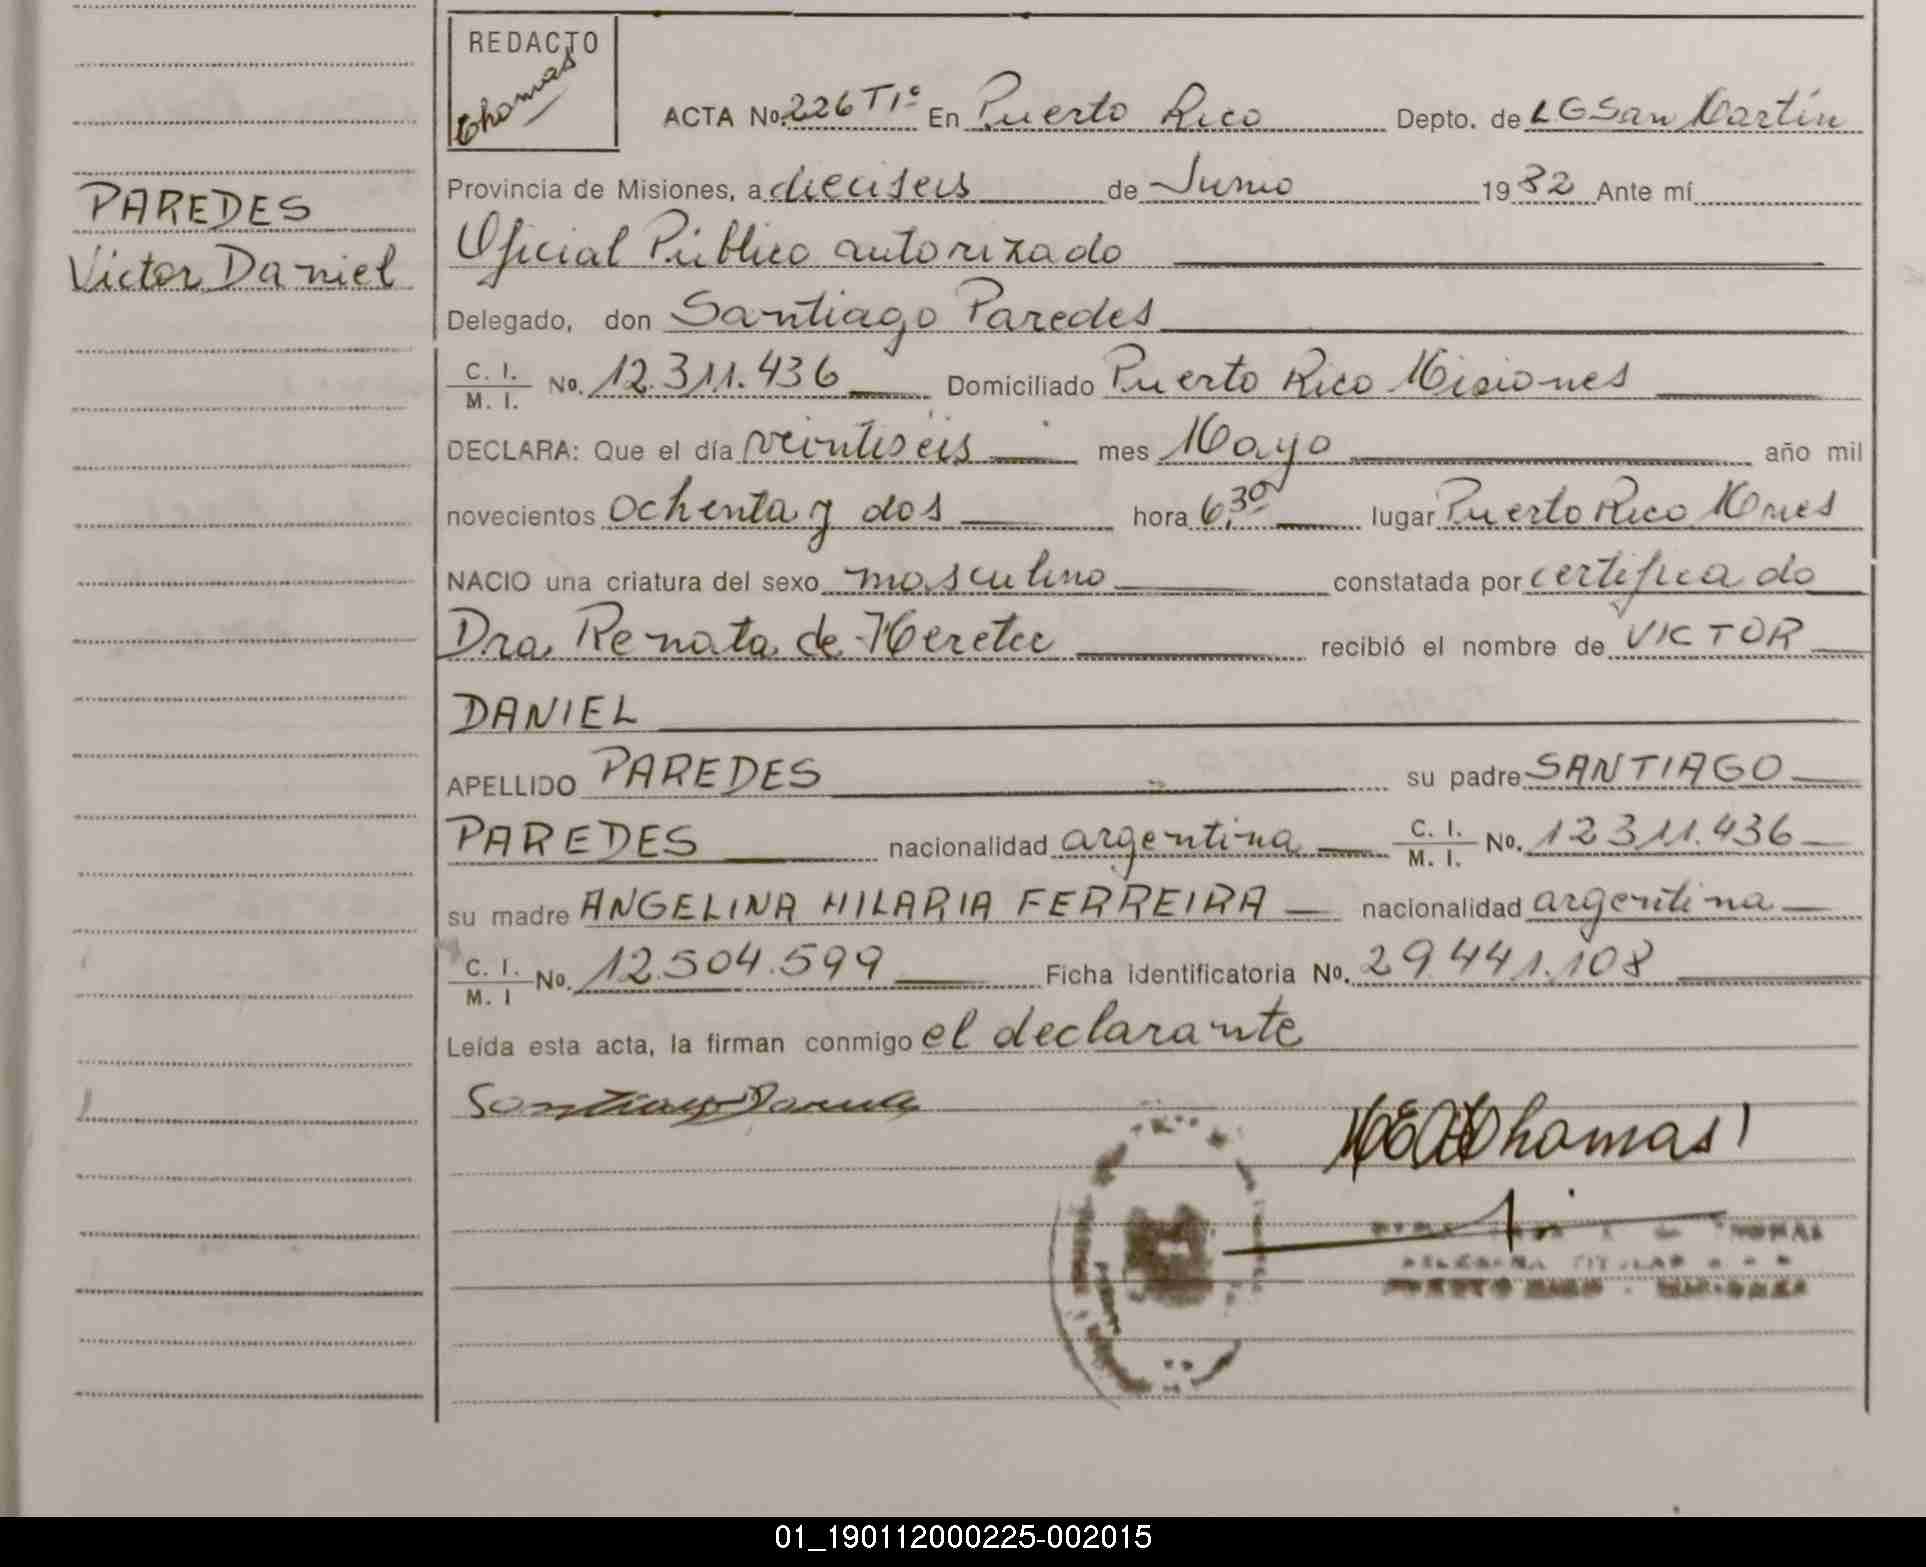 REDACTO
Thomas
ACTA No. 226 T1º En Puerto Rico Depto. de LG San Martín
Provincia de Misiones, a dieciseis de Junio 1982 Ante mí
PAREDES
Victor Daniel
Oficial Público autorizado
Delegado, don Santiago Paredes
C. I. M. I. No. 12.311.436 Domiciliado Puerto Rico Misiones
DECLARA: Que el día veintiséis mes Mayo año mil
novecientos ochenta y dos hora 6,30 lugar Puerto Rico Mnes
NACIO una criatura del sexo masculino constatada por certificado
Dra. Renata de recibió el nombre de VICTOR
DANIEL
APELLIDO PAREDES su padre SANTIAGO
PAREDES nacionalidad argentina C. I. M. I. No. 12311.436
su madre ANGELINA HILARIA FERREIRA nacionalidad argentina
C. I. M. I No. 12.504.599 Ficha identificatoria No. 29.441.108
Leída esta acta, la firman conmigo el declarante
Santiago Paredes
Thomas
THOMAS
TITULAR
PUERTO RICO - MISIONES
01_190112000225-002015